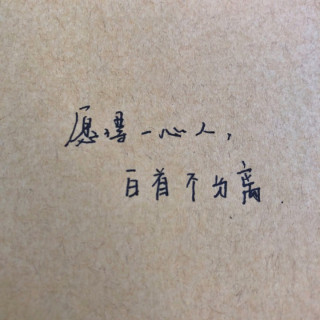 愿得一心人,
白首不分离.